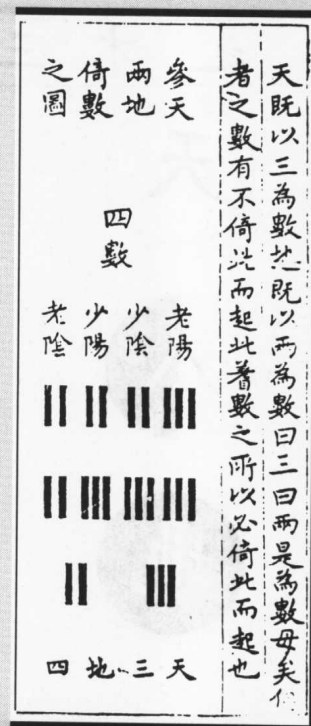 天既以三為數地既以兩為數曰三曰兩是為數母矣
者之數有不倚此而起此蓍數之所以必倚此而起也
參天
兩地
倚數
之圖
四數
老陽
少陰
少陽
老陰
天三地四